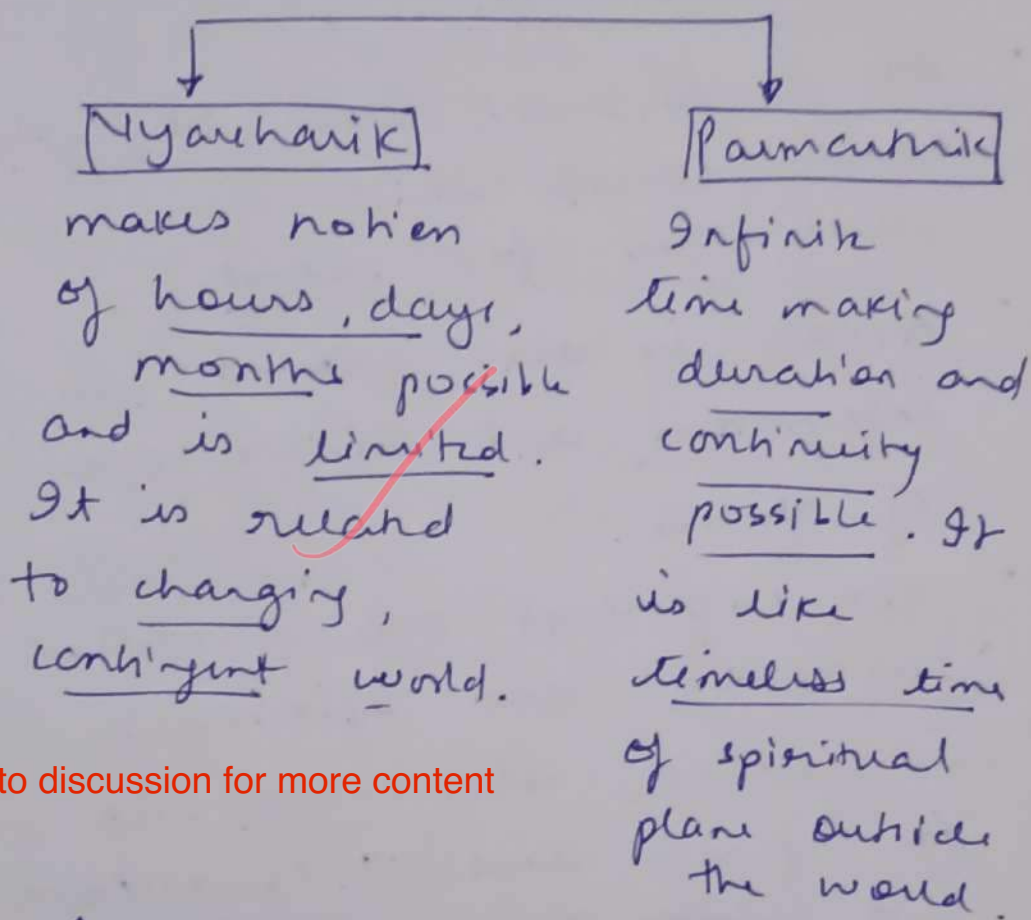 Vyavharik
makes notion
of hours, days,
months possible
and is limited.
It is related
to changing,
contingent world.
Parmarthik
Infinite
time making
duration and
continuity
possible. It
is like
timeless time
of spiritual
plane outside
the world.
to discussion for more content